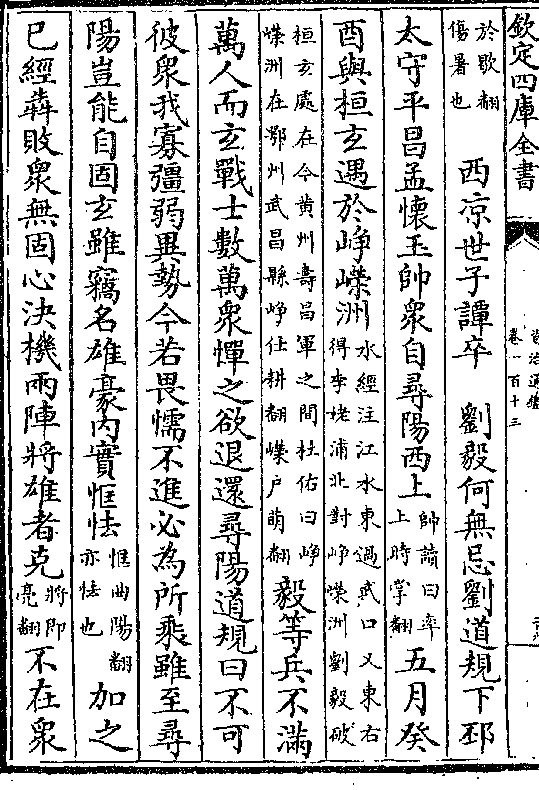 欽定四庫全書
卷一百十三
於歇翻
傷暑也
西凉世子譚卒　劉毅何無忌劉道規下邳
太守平昌孟懷玉帥衆自尋陽西上
帥讀曰率
上時掌翻
五月癸
酉與桓玄遇於峥嶸洲
水經注江水東過武口又東右
得李姥浦北對峥嶸洲劉毅破
桓玄處在今黄州壽昌軍之間杜佑曰峥
嶸洲在鄂州武昌縣峥仕耕翻嶸户萌翻
毅等兵不滿
萬人而玄戰士數萬衆憚之欲退還尋陽道規曰不可
彼衆我寡彊弱異勢今若畏懦不進必為所乘雖至尋
陽豈能自固玄雖竊名雄豪内實恇怯
恇曲陽翻
亦怯也
加之
已經奔敗衆無固心決機兩陣將雄者克
將即
亮翻
不在衆